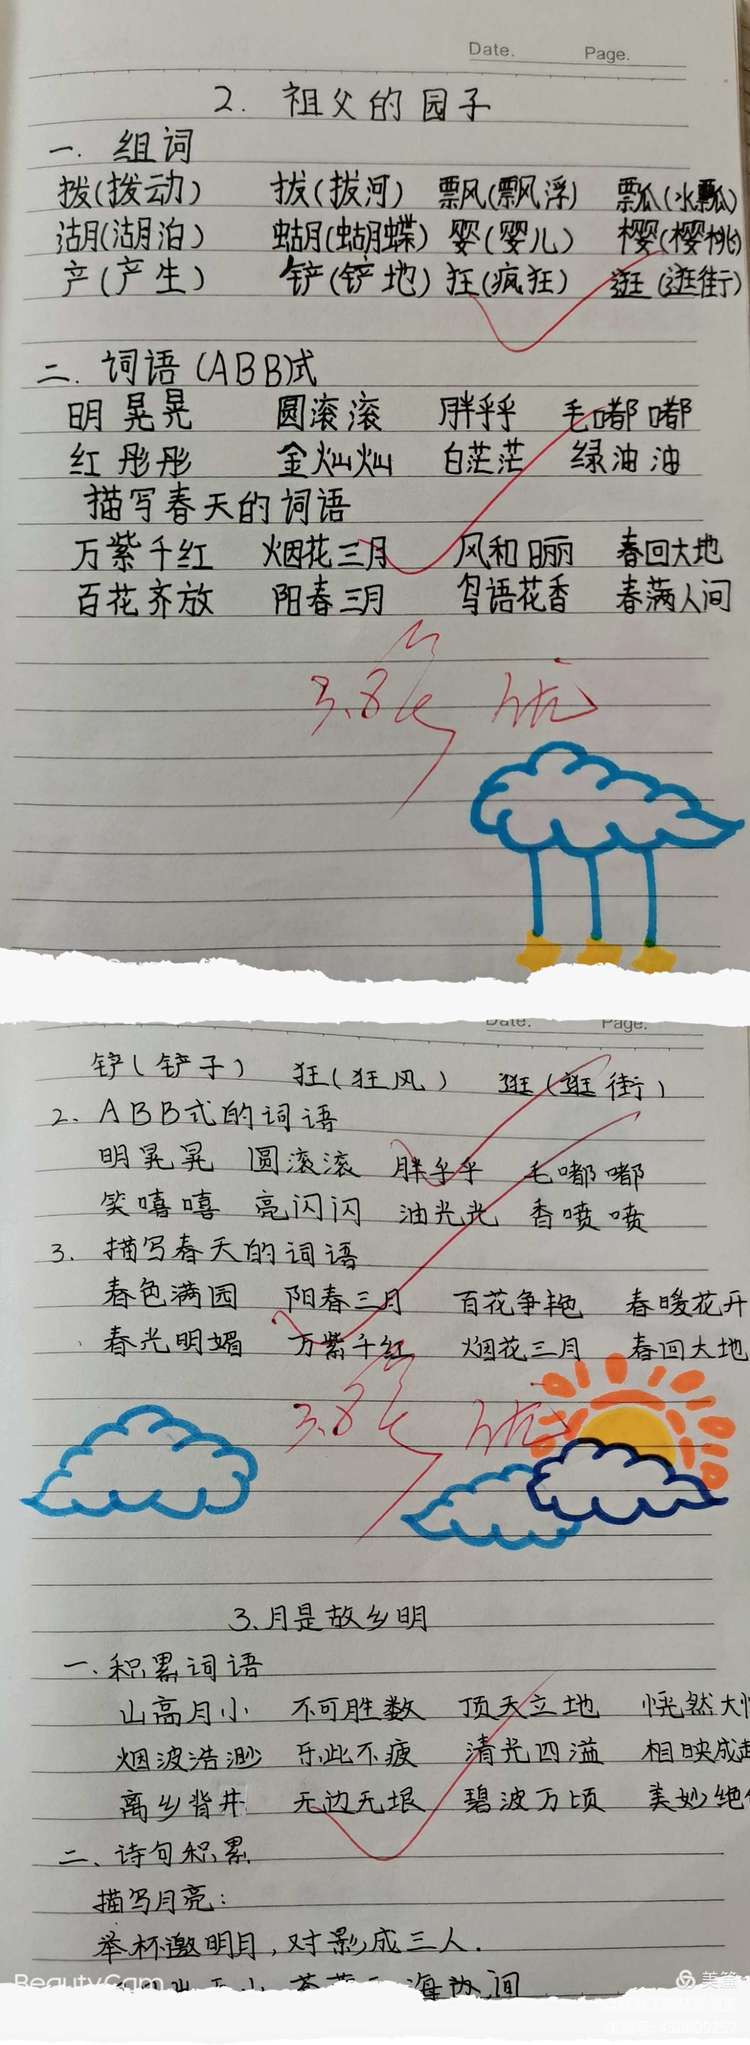 Date. Page.
2. 祖父的园子
一. 组词
拨(拨动) 拔(拔河) 飘(飘浮) 瓢(水瓢)
湖(湖泊) 蝴(蝴蝶) 婴(婴儿) 樱(樱桃)
产(产生) 铲(铲地) 狂(疯狂) 逛(逛街)
二. 词语(ABB)式
明晃晃 圆滚滚 胖乎乎 毛嘟嘟
红彤彤 金灿灿 白茫茫 绿油油
描写春天的词语
万紫千红 烟花三月 风和日丽 春回大地
百花齐放 阳春三月 鸟语花香 春满人间
3.8 优
Date. Page.
铲(铲子) 狂(狂风) 逛(逛街)
2. ABB式的词语
明晃晃 圆滚滚 胖乎乎 毛嘟嘟
笑嘻嘻 亮闪闪 油光光 香喷喷
3. 描写春天的词语
春色满园 阳春三月 百花争艳 春暖花开
春光明媚 万紫千红 烟花三月 春回大地
3.8 优
3.月是故乡明
一.积累词语
山高月小 不可胜数 顶天立地 恍然大
烟波浩渺 乐此不疲 清光四溢 相映成
离乡背井 无边无垠 碧波万顷 美妙绝
二、诗句积累
描写月亮:
举杯邀明月,对影成三人.
BeautyCam
美篇